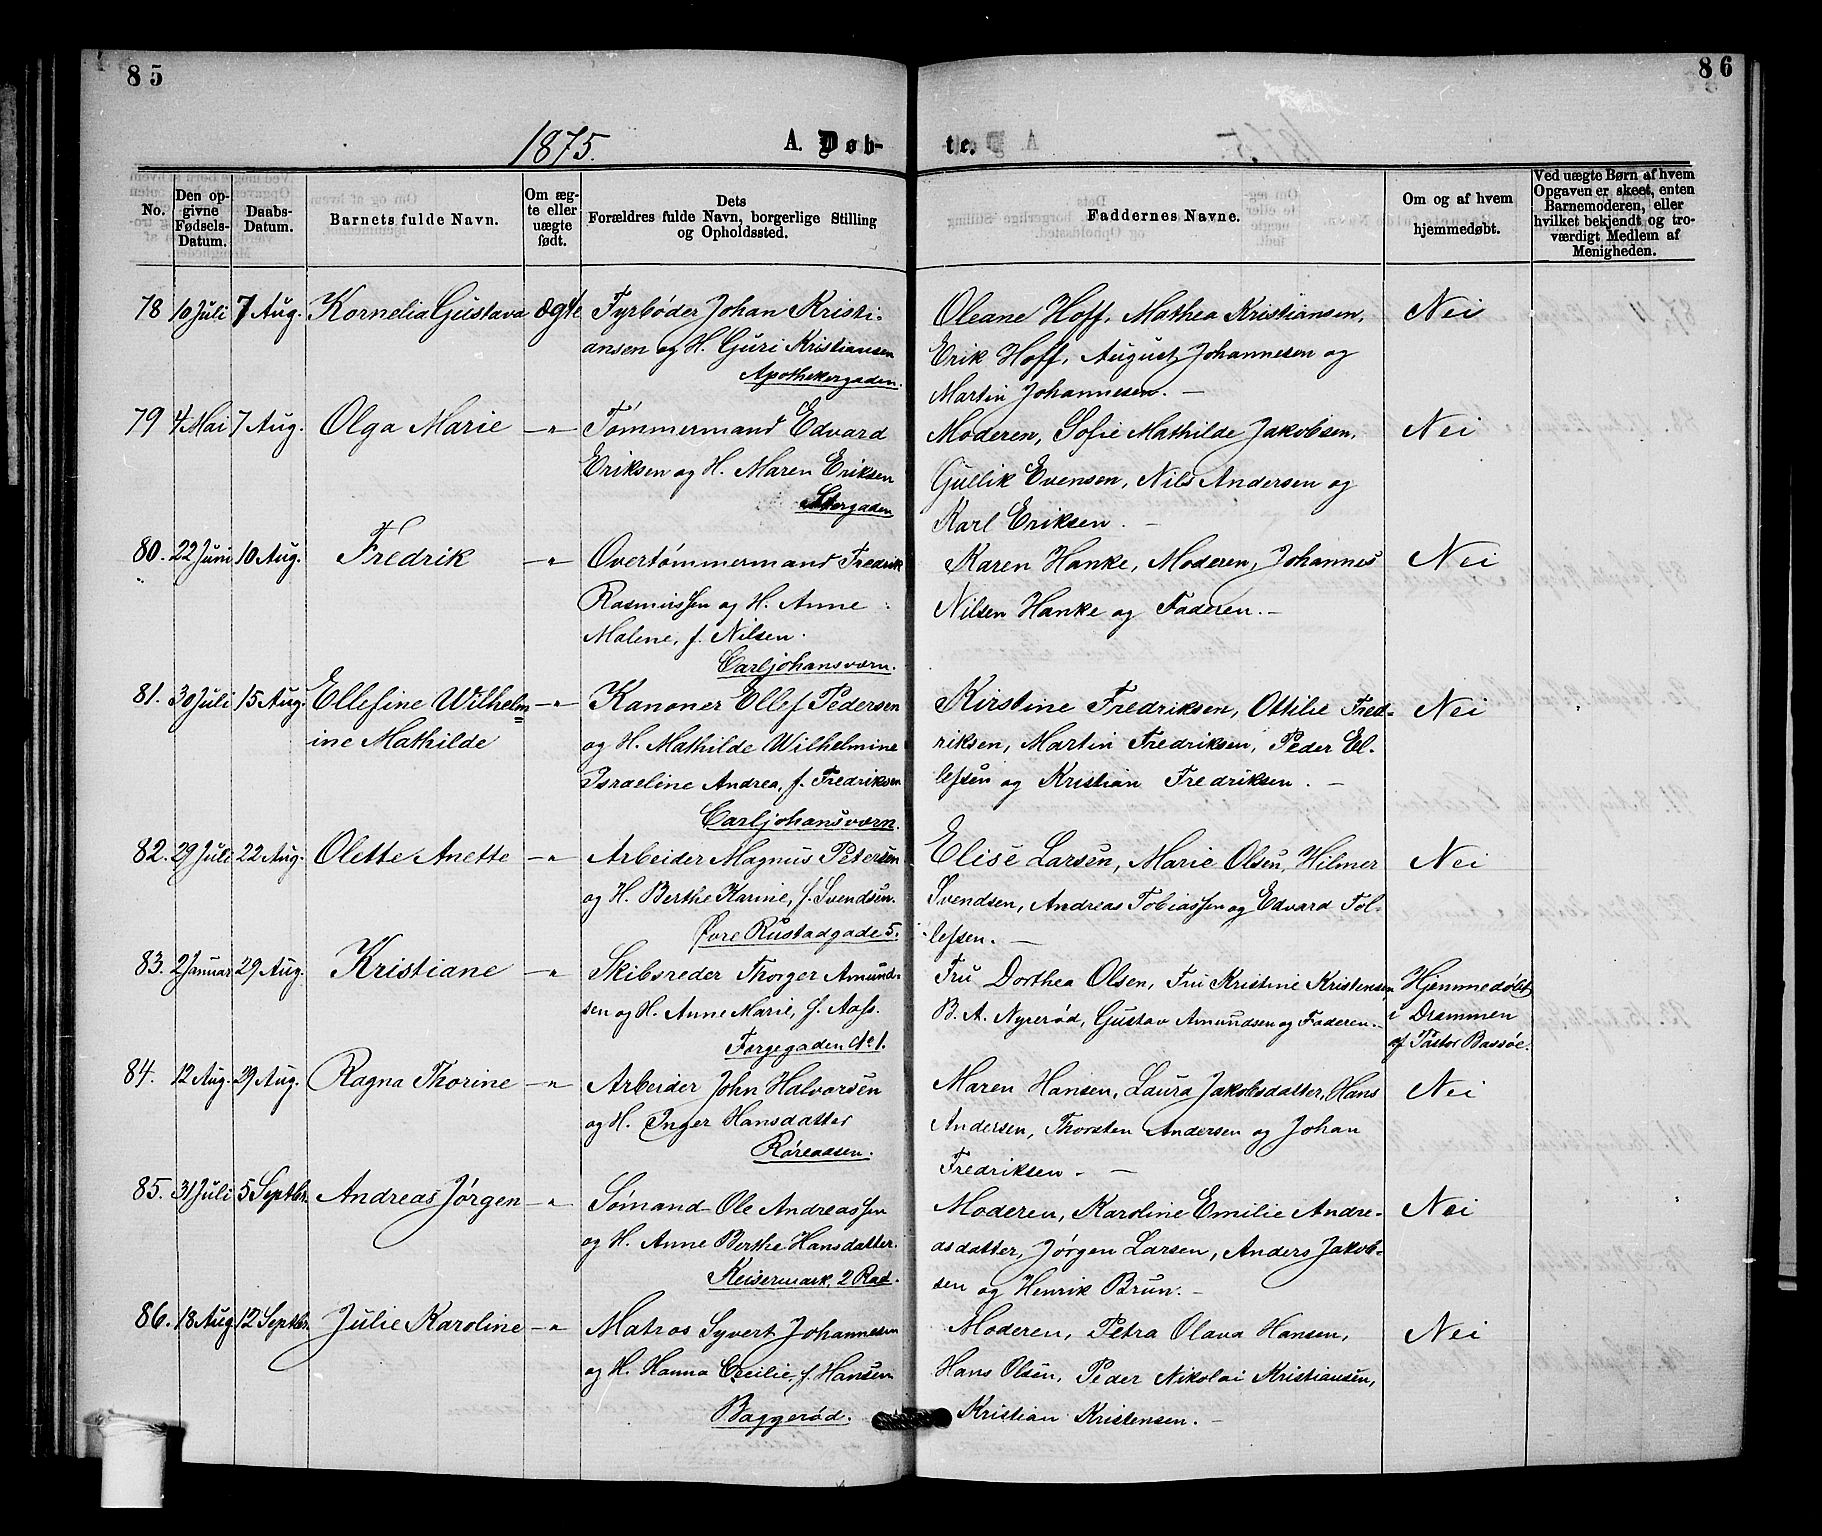 85
86
1875.
A. Døb-
te.
No.
Den op-
givne
Fødsels-
Datum.
Daabs-
Datum.
Barnets fulde Navn.
Om æg-
te eller
uægte
født.
Dets
Forældres fulde Navn, borgerlige Stilling
og Opholdssted.
Faddernes Navne.
Om og af hvem
hjemmedøbt.
Ved uægte Børn af hvem
Opgaven er skeet, enten
Barnemoderen, eller
hvilket bekjendt og tro-
værdigt Medlem af
Menigheden.
78 10 Juli 7 Aug. Kornelia Gustava ægte Fyrbøder Johan Kristi- Oleane Hoff, Mathea Kristiansen, Nei
ansen og H. Guri Kristiansen Erik Hoff, August Johannesen og
Apothekergaden. Martin Johannesen. —
79 4 Mai 7 Aug. Olga Marie —"— Tømmermand Edvard Moderen, Sofie Mathilde Jakobsen, Nei
Eriksen og H. Maren Eriksen Gullik Evensen, Nils Andersen og
Karl Eriksen. —
80. 22 Juni 10 Aug. Fredrik —"— Overtømmermand Fredrik Karen Hanke, Moderen, Johannes Nei
Rasmussen og H. Anne Nilsen Hanke og Faderen. —
Malene, f. Nilsen.
Carljohansværn.
81. 30 Juli 15 Aug. Ellefine Wilhelm —"— Kanoner Ellef Pedersen Kirstine Fredriksen, Ottilie Fred- Nei
ine Mathilde og H. Mathilde Wilhelmine riksen, Martin Fredriksen, Peder El-
Israeline Andrea, f. Fredriksen lefsen og Kristian Fredriksen. —
Carljohansværn.
82. 29 Juli 22 Aug. Olette Anette —"— Arbeider Magnus Petersen Elise Larsen, Marie Olsen, Hilmer Nei
og H. Berthe Karine, f. Svendsen. Svendsen, Andreas Tobiassen og Edvard Tol-
Øvre Rustadgade 5. lefsen. —
83. 2 Januar 29 Aug. Kristiane —"— Skibsreder Thorger Amund- Fru Dorthea Olsen, Fru Kristine Kristensen, Hjemmedøbt
sen og H. Anne Marie, f. Aass. B. A. Nyrerød, Gustav Amundsen og Faderen. i Drammen
Torgegaden No 1. af Pastor Bassøe.
84. 12 Aug. 29 Aug. Ragna Thorine —"— Arbeider John Halvorsen Maren Hansen, Laura Jakobsdatter, Hans Nei
og H. Inger Hansdatter Andersen, Thorsten Andersen og Johan
Røreaasen. Fredriksen. —
85. 31 Juli 5 Septbr. Andreas Jørgen —"— Sømand Ole Andreassen Moderen, Karoline Emilie Andre- Nei
og H. Anne Berthe Hansdatter. asdatter, Jørgen Larsen, Anders Jakob-
Keisermark, 2 Rad. sen og Henrik Brun. —
86. 18 Aug. 12 Septbr. Julie Karoline —"— Matros Syvert Johannesen Moderen, Petra Olava Hansen, Nei
og H. Hanna Cecilie, f. Hansen Hans Olsen, Peder Nikolai Kristiansen,
Baggerød. Kristian Kristensen. —